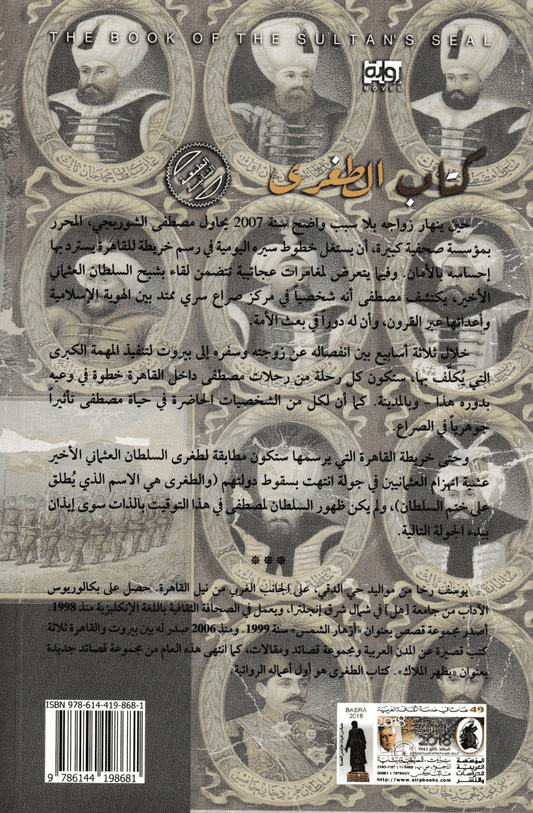 THE BOOK OF THE SULTAN'S SEAL
رواية
NOVEL
كتاب الطغرى
حين ينهار زواجه بلا سبب واضح سنة 2007 يحاول مصطفى الشوربجي، المحرر
بمؤسسة صحفية كبيرة، أن يستغل خطوط سيره اليومية في رسم خريطة للقاهرة يسترد بها
إحساسه بالأمان. وفيما يتعرض لمغامرات عجائبية تتضمن لقاء بشبح السلطان العثماني
الأخير، يكتشف مصطفى أنه شخصياً في مركز صراع سري ممتد بين الهوية الإسلامية
وأعدائها عبر القرون، وأن له دوراً في بعث الأمة.
خلال ثلاثة أسابيع بين انفصاله عن زوجته وسفره إلى بيروت لتنفيذ المهمة الكبرى
التي يُكلَّف بها، ستكون كل رحلة من رحلات مصطفى داخل القاهرة خطوة في وعيه
بدوره هذا - وبالمدينة. كما أن لكل من الشخصيات الحاضرة في حياة مصطفى تأثيراً
جوهرياً في الصراع.
وحتى خريطة القاهرة التي يرسمها ستكون مطابقة لطغرى السلطان العثماني الأخير
عشية انهزام العثمانيين في جولة انتهت بسقوط دولتهم (والطغرى هي الاسم الذي يُطلق
على ختم السلطان)، ولم يكن ظهور السلطان لمصطفى في هذا التوقيت بالذات سوى إيذان
ببدء الجولة التالية.
***
يوسف رخا من مواليد حي الدقي، على الجانب الغربي من نيل القاهرة. حصل على بكالوريوس
الآداب من جامعة [هل] في شمال شرق إنجلترا، ويعمل في الصحافة الثقافية باللغة الإنكليزية منذ 1998.
أصدر مجموعة قصص بعنوان «أزهار الشمس» سنة 1999. ومنذ 2006 صدر له بين بيروت والقاهرة ثلاثة
كتب قصيرة عن المدن العربية ومجموعة قصائد ومقالات، كما انتهى هذه العام من مجموعة قصائد جديدة
بعنوان «يظهر الملاك». كتاب الطغرى هو أول أعماله الروائية.
ISBN 978-614-419-868-1
9 786144 198681
BASRA
2018
49 عاماً في خدمة الثقافة العربية
2018
المؤسسة
العربية
للدراسات
والنشر
http://www.airpbooks.com